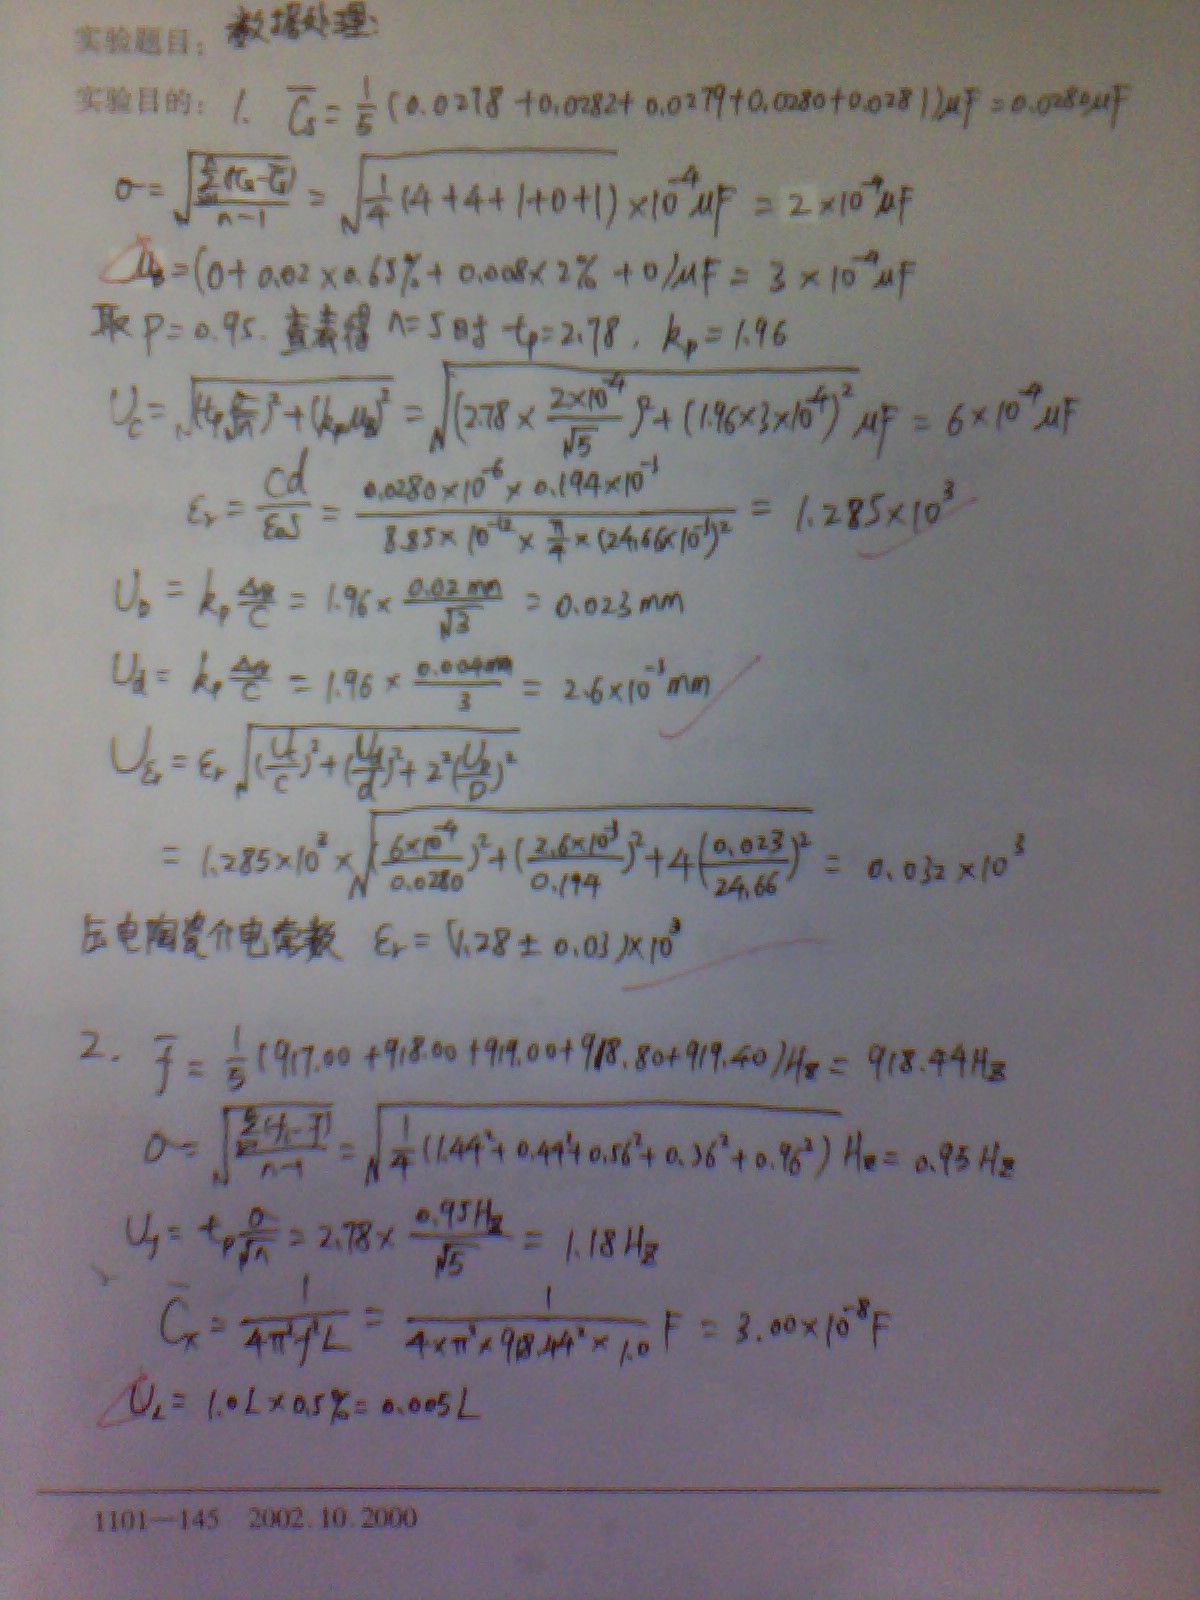 实验题目： 数据处理:
实验目的： 1. C̅s = 1/5 (0.0278 + 0.0282 + 0.0279 + 0.0280 + 0.0281) μF = 0.0280 μF
σ = √(Σ(Cs - C̅s)/(n-1)) = √(1/4 (4+4+1+0+1)) × 10⁻⁴ μF = 2 × 10⁻⁴ μF
U_B = (0 + 0.02 × 0.65% + 0.008 × 2% + 0) μF = 3 × 10⁻⁴ μF
取 P = 0.95. 查表得 n = 5 时 tp = 2.78, kp = 1.96
Uc = √((tp σ/√n)² + (kp u_B)²) = √((2.78 × 2×10⁻⁴/√5)² + (1.96×3×10⁻⁴)²) μF = 6 × 10⁻⁴ μF
εr = Cd/ε₀S = 0.0280×10⁻⁶ × 0.194×10⁻³ / 8.85×10⁻¹² × π/4 × (24.66×10⁻³)² = 1.285×10³
U_D = kp Δ仪/C = 1.96 × 0.02mm/√3 = 0.023 mm
U_d = kp Δ仪/C = 1.96 × 0.004mm/3 = 2.6×10⁻³ mm
Uεr = εr √((Uc/C)² + (Ud/d)² + 2²(U_D/D)²)
= 1.285×10³ × √((6×10⁻⁴/0.0280)² + (2.6×10⁻³/0.194)² + 4(0.023/24.66)²) = 0.032×10³
压电陶瓷介电常数 εr = (1.28 ± 0.03)×10³
2. f̅ = 1/5 (917.00 + 918.00 + 919.00 + 918.80 + 919.40) Hz = 918.44 Hz
σ = √(Σ(fi - f̅)/(n-1)) = √(1/4 (1.44² + 0.44² + 0.56² + 0.36² + 0.96²)) Hz = 0.95 Hz
Uf = tp σ/√n = 2.78 × 0.95Hz/√5 = 1.18 Hz
C̅x = 1/4π²f²L = 1/4×π²×918.44²×1.0 F = 3.00×10⁻⁸ F
U_L = 1.0L × 0.5% = 0.005L
1101—145 2002.10.2000